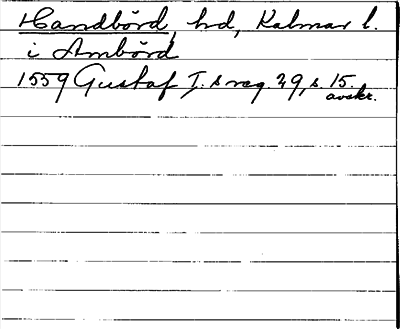 Handbörd, hd, Kalmar l.
i Ambörd
1559 Gustaf I.s reg. 29, s. 15.
avskr.